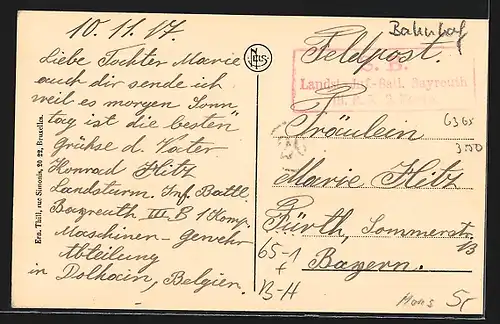 10. 11. 17.
Liebe Tochter Marie
auch dir sende ich
weil es morgen Sonn
tag ist die besten
grühse d. Vater
Konrad Hitz
Landsturm. Inf. Battl.
Bayreuth III. B 1 Komp.
Maschinen-Gewehr
Abteilung
in Dolhain, Belgien.
Ern. Thill, rue Simonis, 20 22, Bruxelles.
NELS
Bahnhof
Feldpost.
S. B.
Landst.-Inf.-Batl. Bayreuth
Fräulein
Marie Hitz
Fürth, Sommerstr.
13
Bayern.
6365
300
65-1
+
B-H
Mons